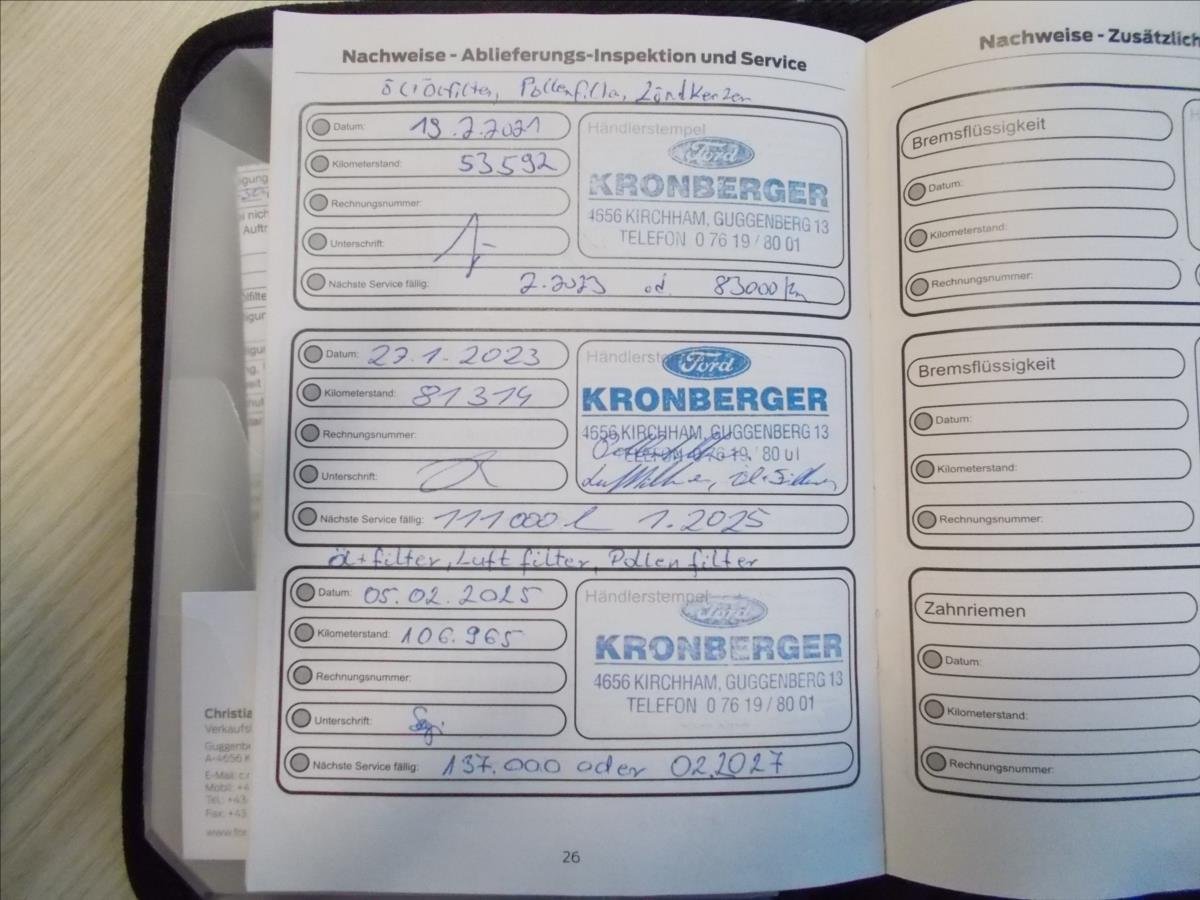 Nachweise - Ablieferungs-Inspektion und Service
Öl+Ölfilter, Pollenfilter, Zündkerzen
Datum: 19.2.2021
Kilometerstand: 53592
Rechnungsnummer:
Unterschrift:
Nächste Service fällig: 2.2023 od. 83000 km
Händlerstempel
Ford
KRONBERGER
4656 KIRCHHAM, GUGGENBERG 13
TELEFON 0 76 19 / 80 01
Datum: 27.1.2023
Kilometerstand: 81314
Rechnungsnummer:
Unterschrift:
Nächste Service fällig: 111000 1.2025
Händlerstempel
Ford
KRONBERGER
4656 KIRCHHAM, GUGGENBERG 13
TELEFON 0 76 19 / 80 01
Öl+filter, Luftfilter, Pollenfilter
Datum: 05.02.2025
Kilometerstand: 106.965
Rechnungsnummer:
Unterschrift:
Nächste Service fällig: 137.000 oder 02.2027
Händlerstempel
Ford
KRONBERGER
4656 KIRCHHAM, GUGGENBERG 13
TELEFON 0 76 19 / 80 01
26
Nachweise - Zusätzlich
Bremsflüssigkeit
Datum:
Kilometerstand:
Rechnungsnummer:
Bremsflüssigkeit
Datum:
Kilometerstand:
Rechnungsnummer:
Zahnriemen
Datum:
Kilometerstand:
Rechnungsnummer:
Christia
Verkaufs
Guggenb
A-4656 K
E-Mail: c.r
Mobil: +4
Tel.: +43
Fax: +43
www.for